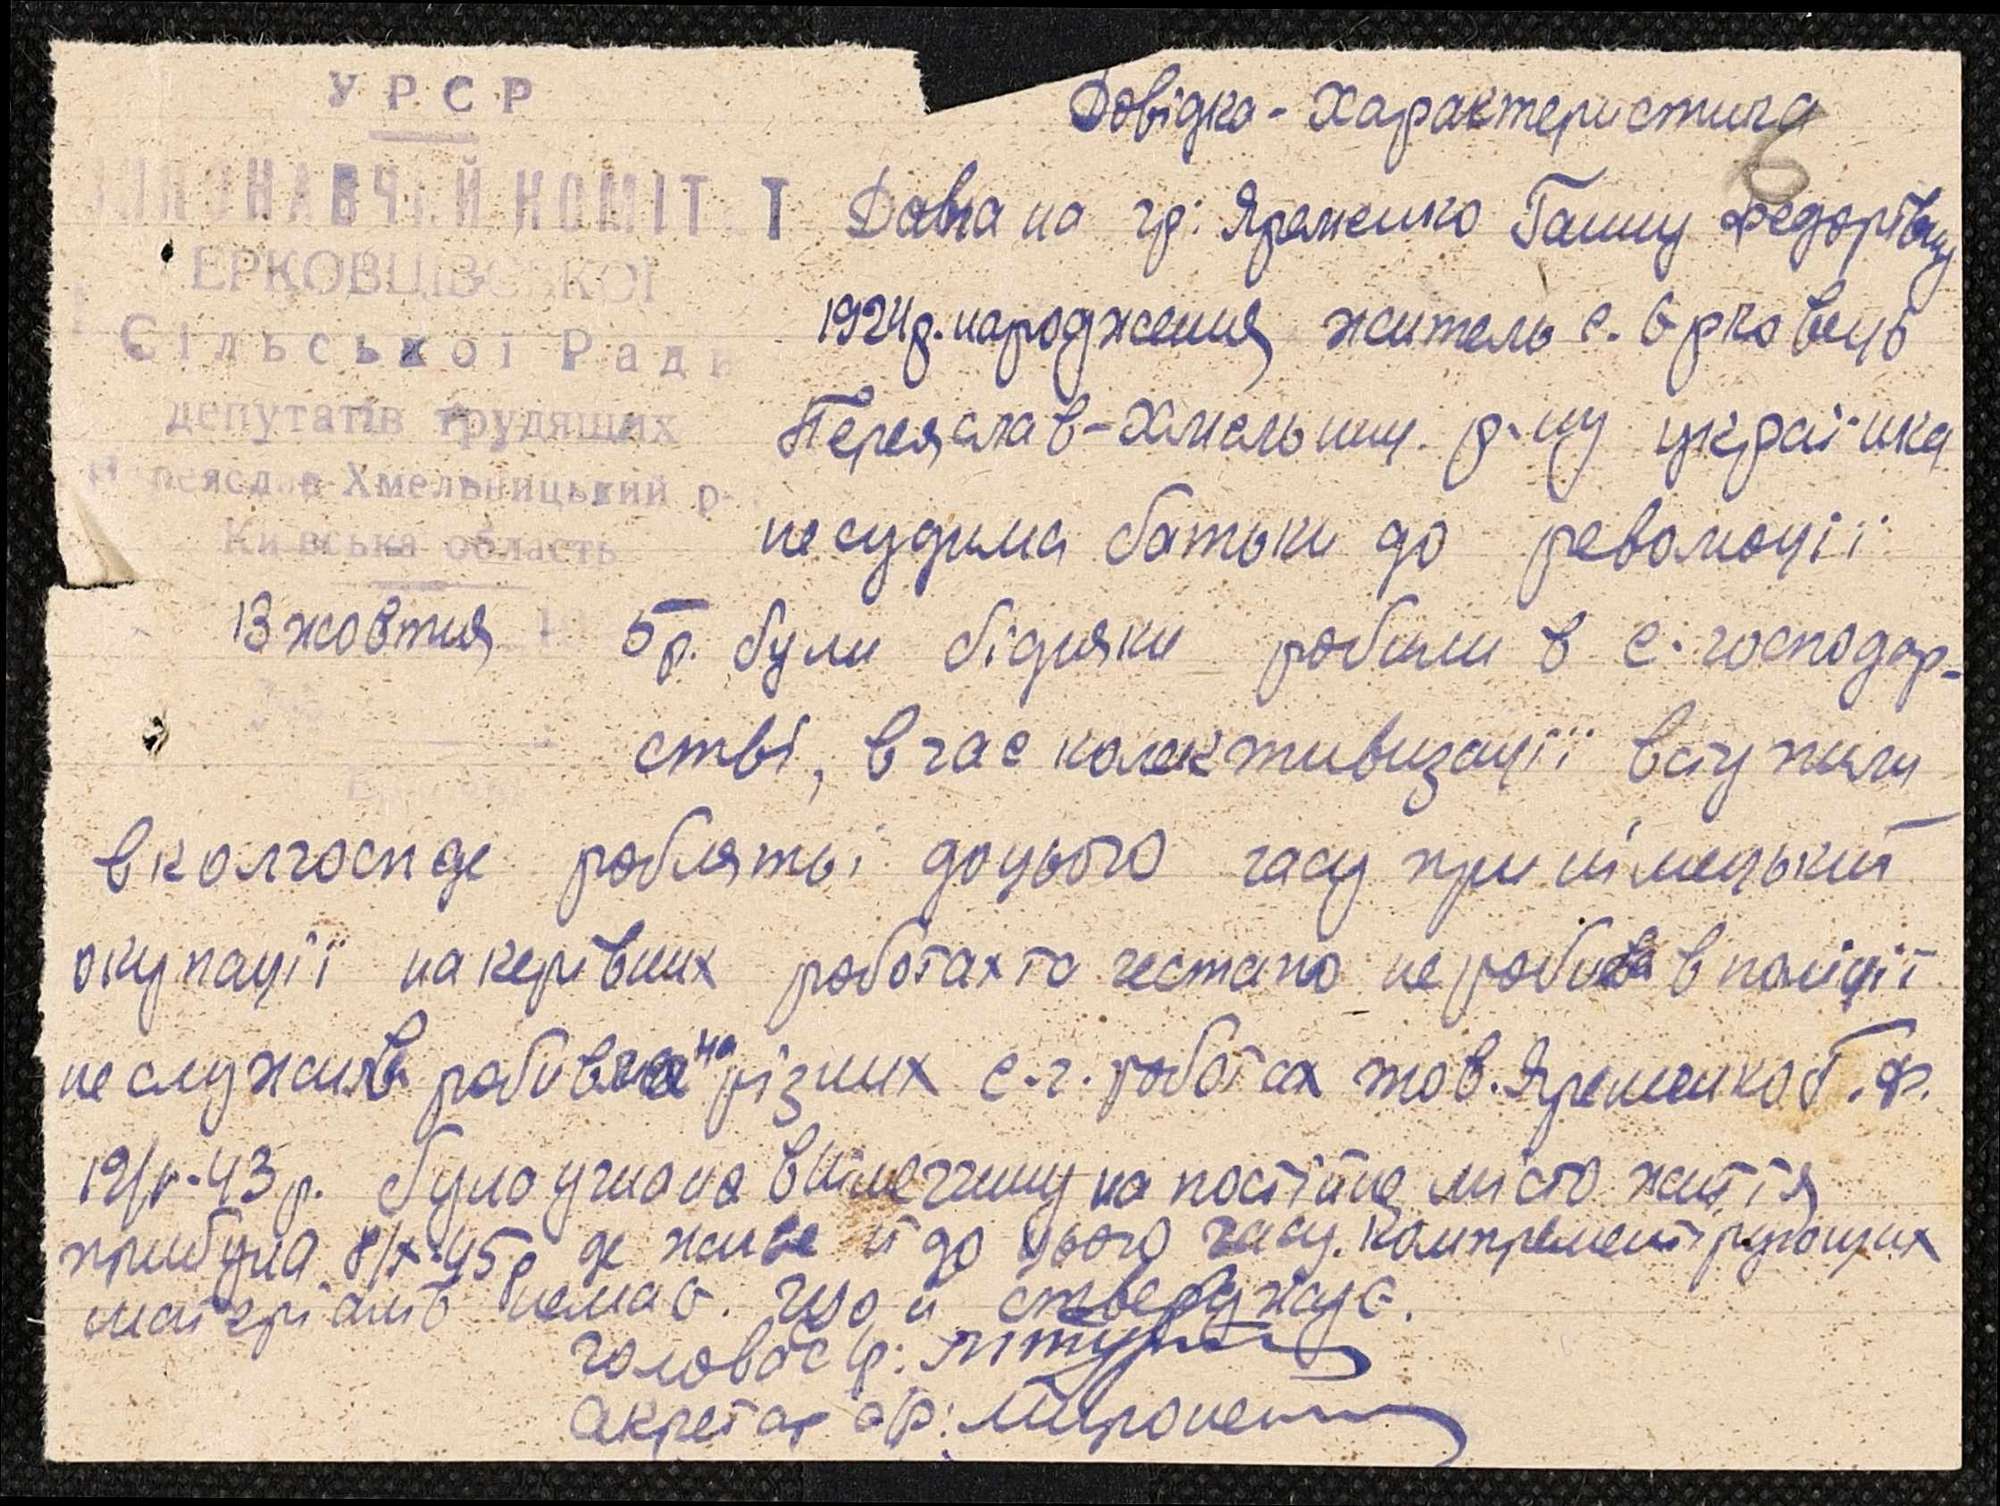 УРСР
ВИКОНАВЧИЙ КОМІТЕТ
ЕРКОВЦІВСЬКОЇ
Сільської Ради
депутатів трудящих
Переяслав-Хмельницький р-
Київська область
13 жовтня
5р.
Довідка-характеристика
6
Дана на гр: Яременко Ганну Федорівну
1924р. народження житель с. Єрковець
Переяслав-Хмельниц. р-ну українка
не судима батьки до революції
були бідняки робили в с. господар-
стві, в час колективизації вступили
в колгосп де роблять і до цього часу при німецький
окупації на керівних роботах та гестапо не робила в поліції
не служила робила на різних с.г. роботах тов. Яременко Г.Ф.
19/V-43р. була угнана в Німеччину на постійне місто життя
прибула 8/IX-45р де живе й до цього часу. компрементірующих
матеріалів немає. що и стверджує.
Голова с/р:
Секретар с/р: Мироненко